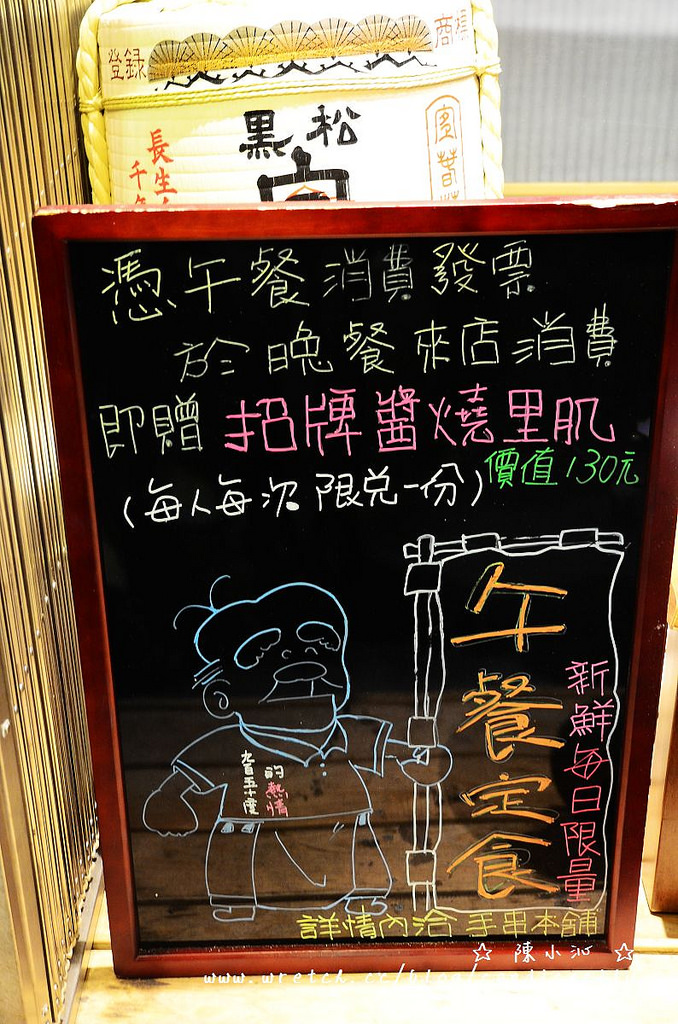 登録
商標
黒松
長生
憑午餐消費發票
於晚餐來店消費
即贈招牌醬燒里肌
價值130元
(每人每次限兌一份)
午餐定食
新鮮每日限量
的熱情
詳情內洽手串本舖
☆ 陳小沁 ☆